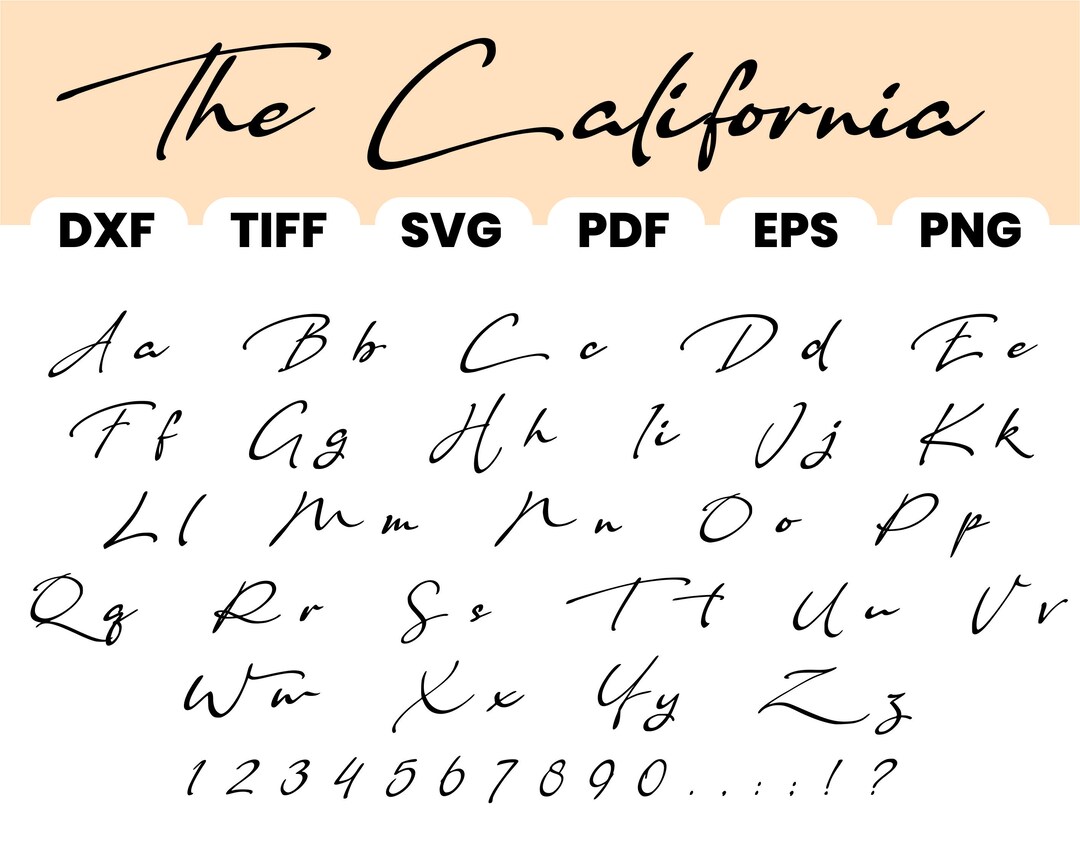 The California
DXF TIFF SVG PDF EPS PNG
Aa Bb Cc Dd Ee
Ff Gg Hh Ii Jj Kk
Ll Mm Nn Oo Pp
Qq Rr Ss Tt Uu Vv
Ww Xx Yy Zz
1 2 3 4 5 6 7 8 9 0 . . : : ! ?